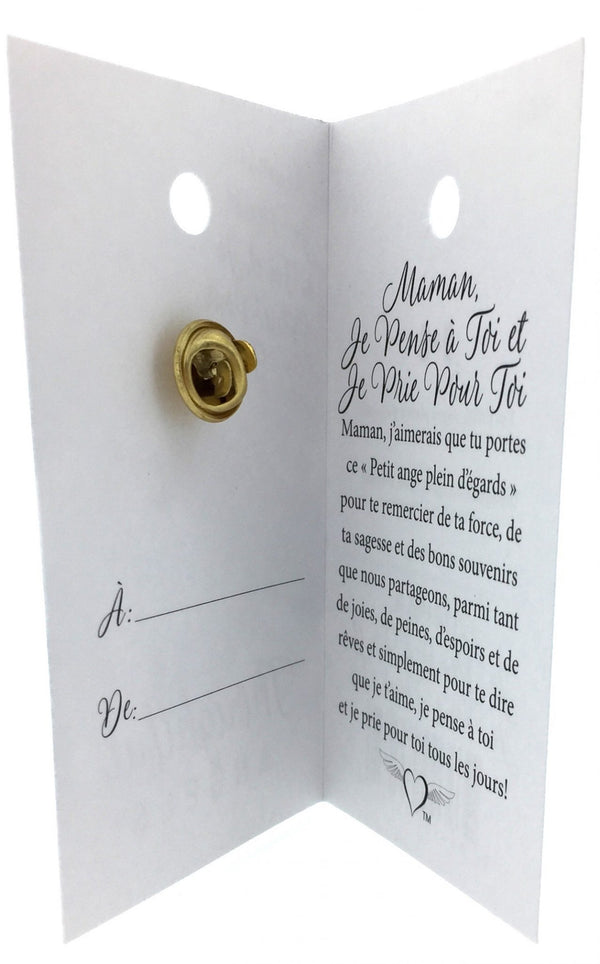 À:
De:
Maman,
Je Pense à Toi et
Je Prie Pour Toi
Maman, j'aimerais que tu portes
ce « Petit ange plein d'égards »
pour te remercier de ta force, de
ta sagesse et des bons souvenirs
que nous partageons, parmi tant
de joies, de peines, d'espoirs et de
rêves et simplement pour te dire
que je t'aime, je pense à toi
et je prie pour toi tous les jours!
TM